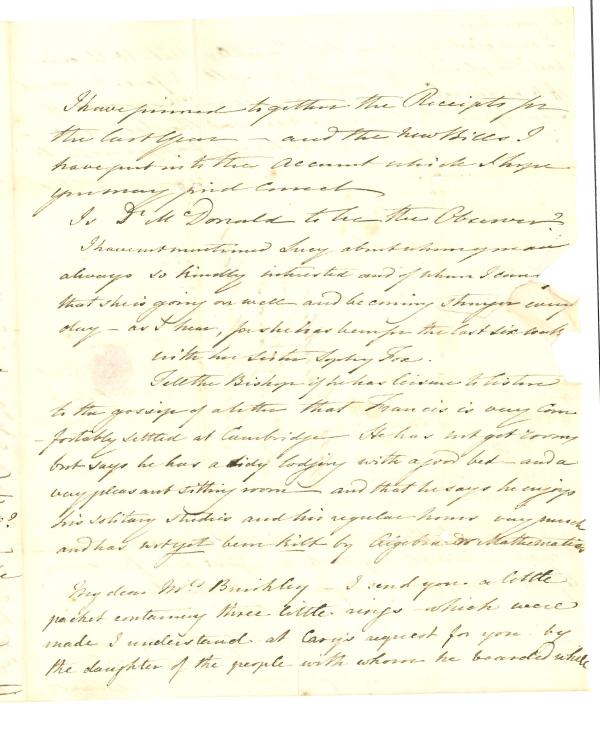 I have pinned together the Receipts for
the last Year — and the New Bills I
have put into the Account which I hope
you may find Correct
Is Dr. McDonald to be the Observer?
I have not mentioned Lucy about whom you are
always so kindly interested and of whom I can
that she is going on well and becoming stronger every
day — as I hear, for she has been for the last six week
with her Sister Sophy Fox.
Tell the Bishop if he has leisure to listen
to the gossip of a letter that Francis is very Com
-fortably settled at Cambridge He has not got rooms
but says he has a tidy lodging with a good bed — and a
very pleasant sitting room — and that he says he enjoys
his solitary studies and his regular hours very much
and has not yet been kilt by Algebra or Mathematics
My dear Mrs. Brinkley — I send you a little
packet containing three little rings which were
made I understand at Cary's request for you by
the daughter of the people with whom he boarded while